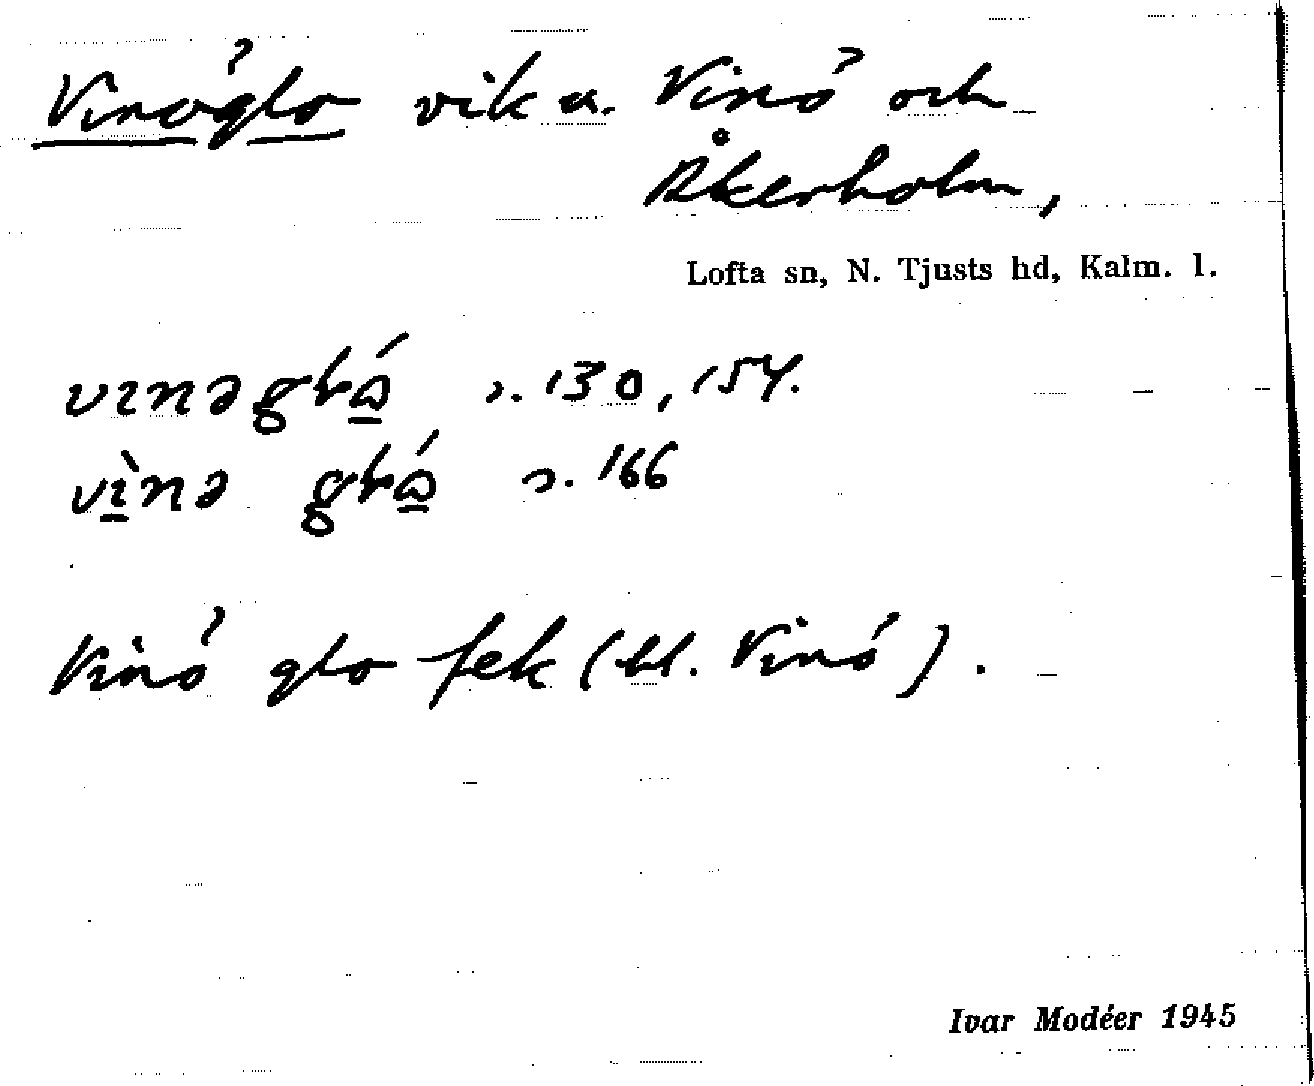 Vinöglo vik u. Vinö och
Åkerholm,
Lofta sn, N. Tjusts hd, Kalm. l.
s. 130, 154.
s. 166
Vinö glo fek (bl. Vinö).
Ivar Modéer 1945